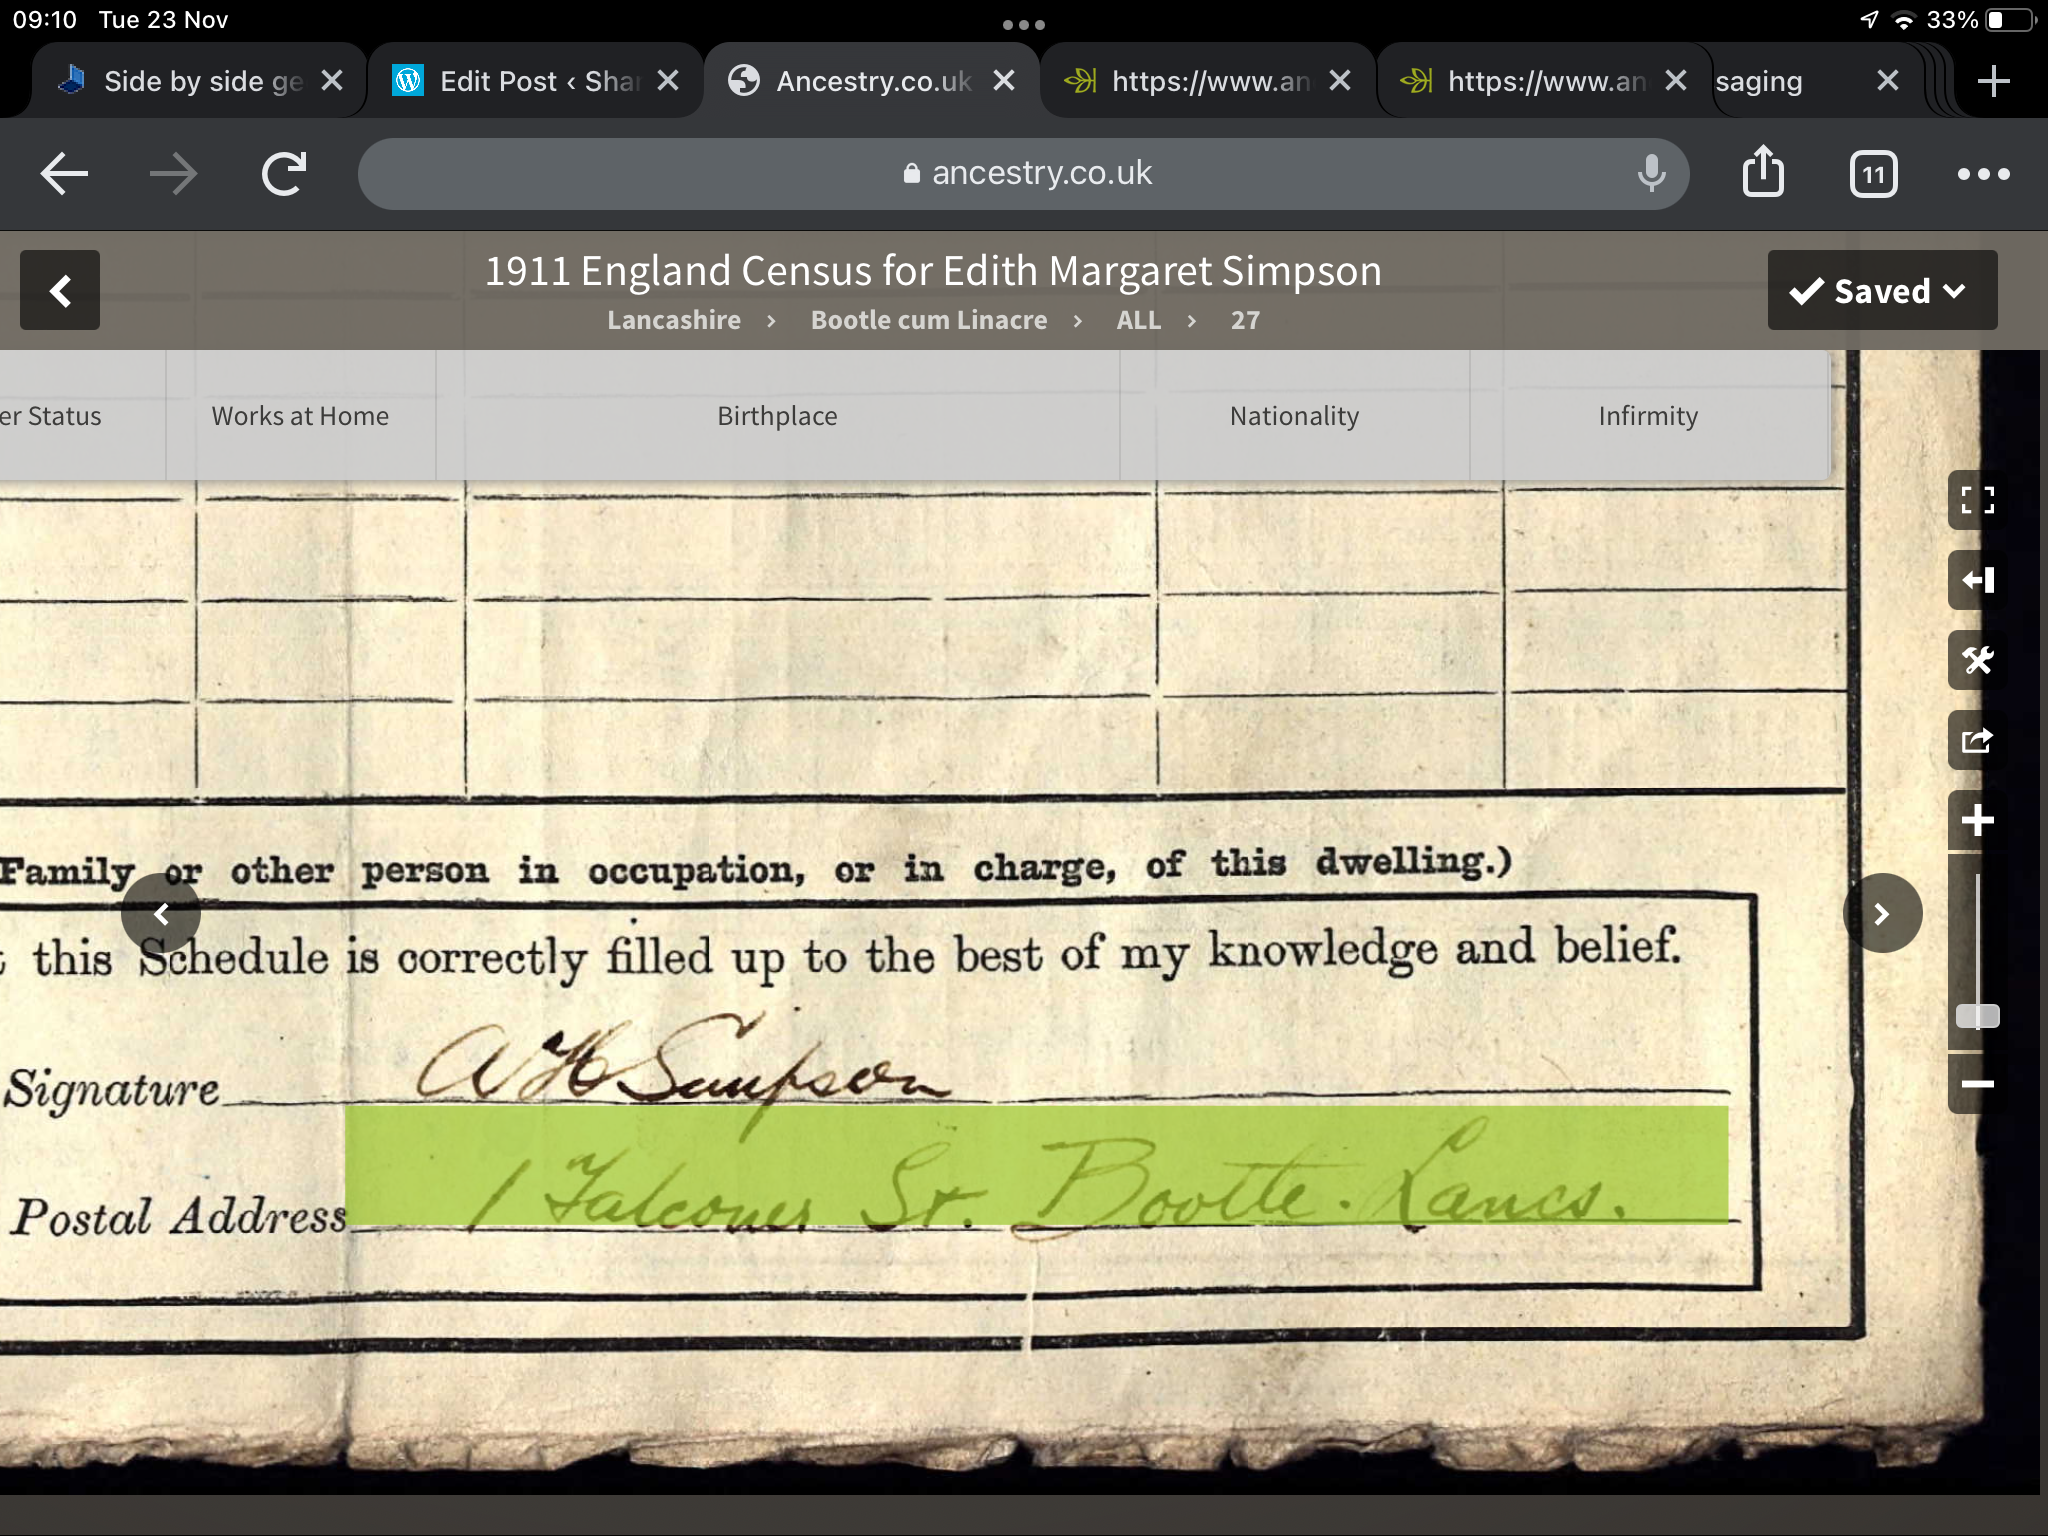 09:10 Tue 23 Nov
33%
Side by side ge
Edit Post ‹ Shar
Ancestry.co.uk
https://www.an
https://www.an
saging
ancestry.co.uk
11
1911 England Census for Edith Margaret Simpson
Saved
Lancashire › Bootle cum Linacre › ALL › 27
er Status
Works at Home
Birthplace
Nationality
Infirmity
Family or other person in occupation, or in charge, of this dwelling.)
this Schedule is correctly filled up to the best of my knowledge and belief.
Signature A H Simpson
Postal Address 1 Falconer St. Bootle. Lancs.